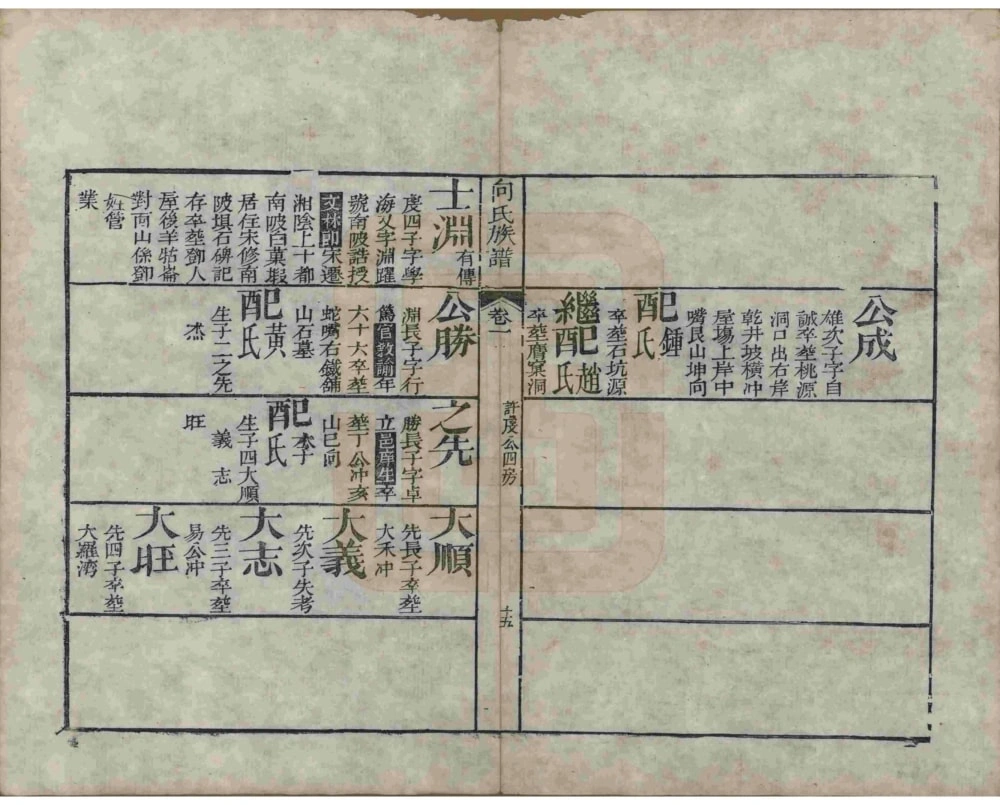 公成
雄次子字自
誠卒塟桃源
洞口出右岸
乾井坡橫冲
屋塲上岸中
嘴艮山坤向
配鍾氏
卒塟石坑源
繼配趙氏
卒塟䧹窠洞
向氏族譜
卷一
許虔公四房
十五
士淵有傳
虔四子字學
海又字淵躍
號南陂誥授
文林郎宋遷
湘陰上十都
南陂白菓塅
居住宋修南
陂塤石碑記
存卒塟鄧人
屋後羊牯崙
對面山係鄧
姓管
業
公勝
淵長子字行
篤官教諭年
六十六卒塟
蛇嘴右鐵鋪
山石墓
配黃氏
生子二之先
杰
之先
勝長子字卓
立邑庠生卒
塟丁公冲亥
山巳向
配李氏
生子四大順
義志
旺
大順
先長子卒塟
大禾冲
大義
先次子失考
大志
先三子卒塟
易公冲
大旺
先四子卒塟
大羅湾